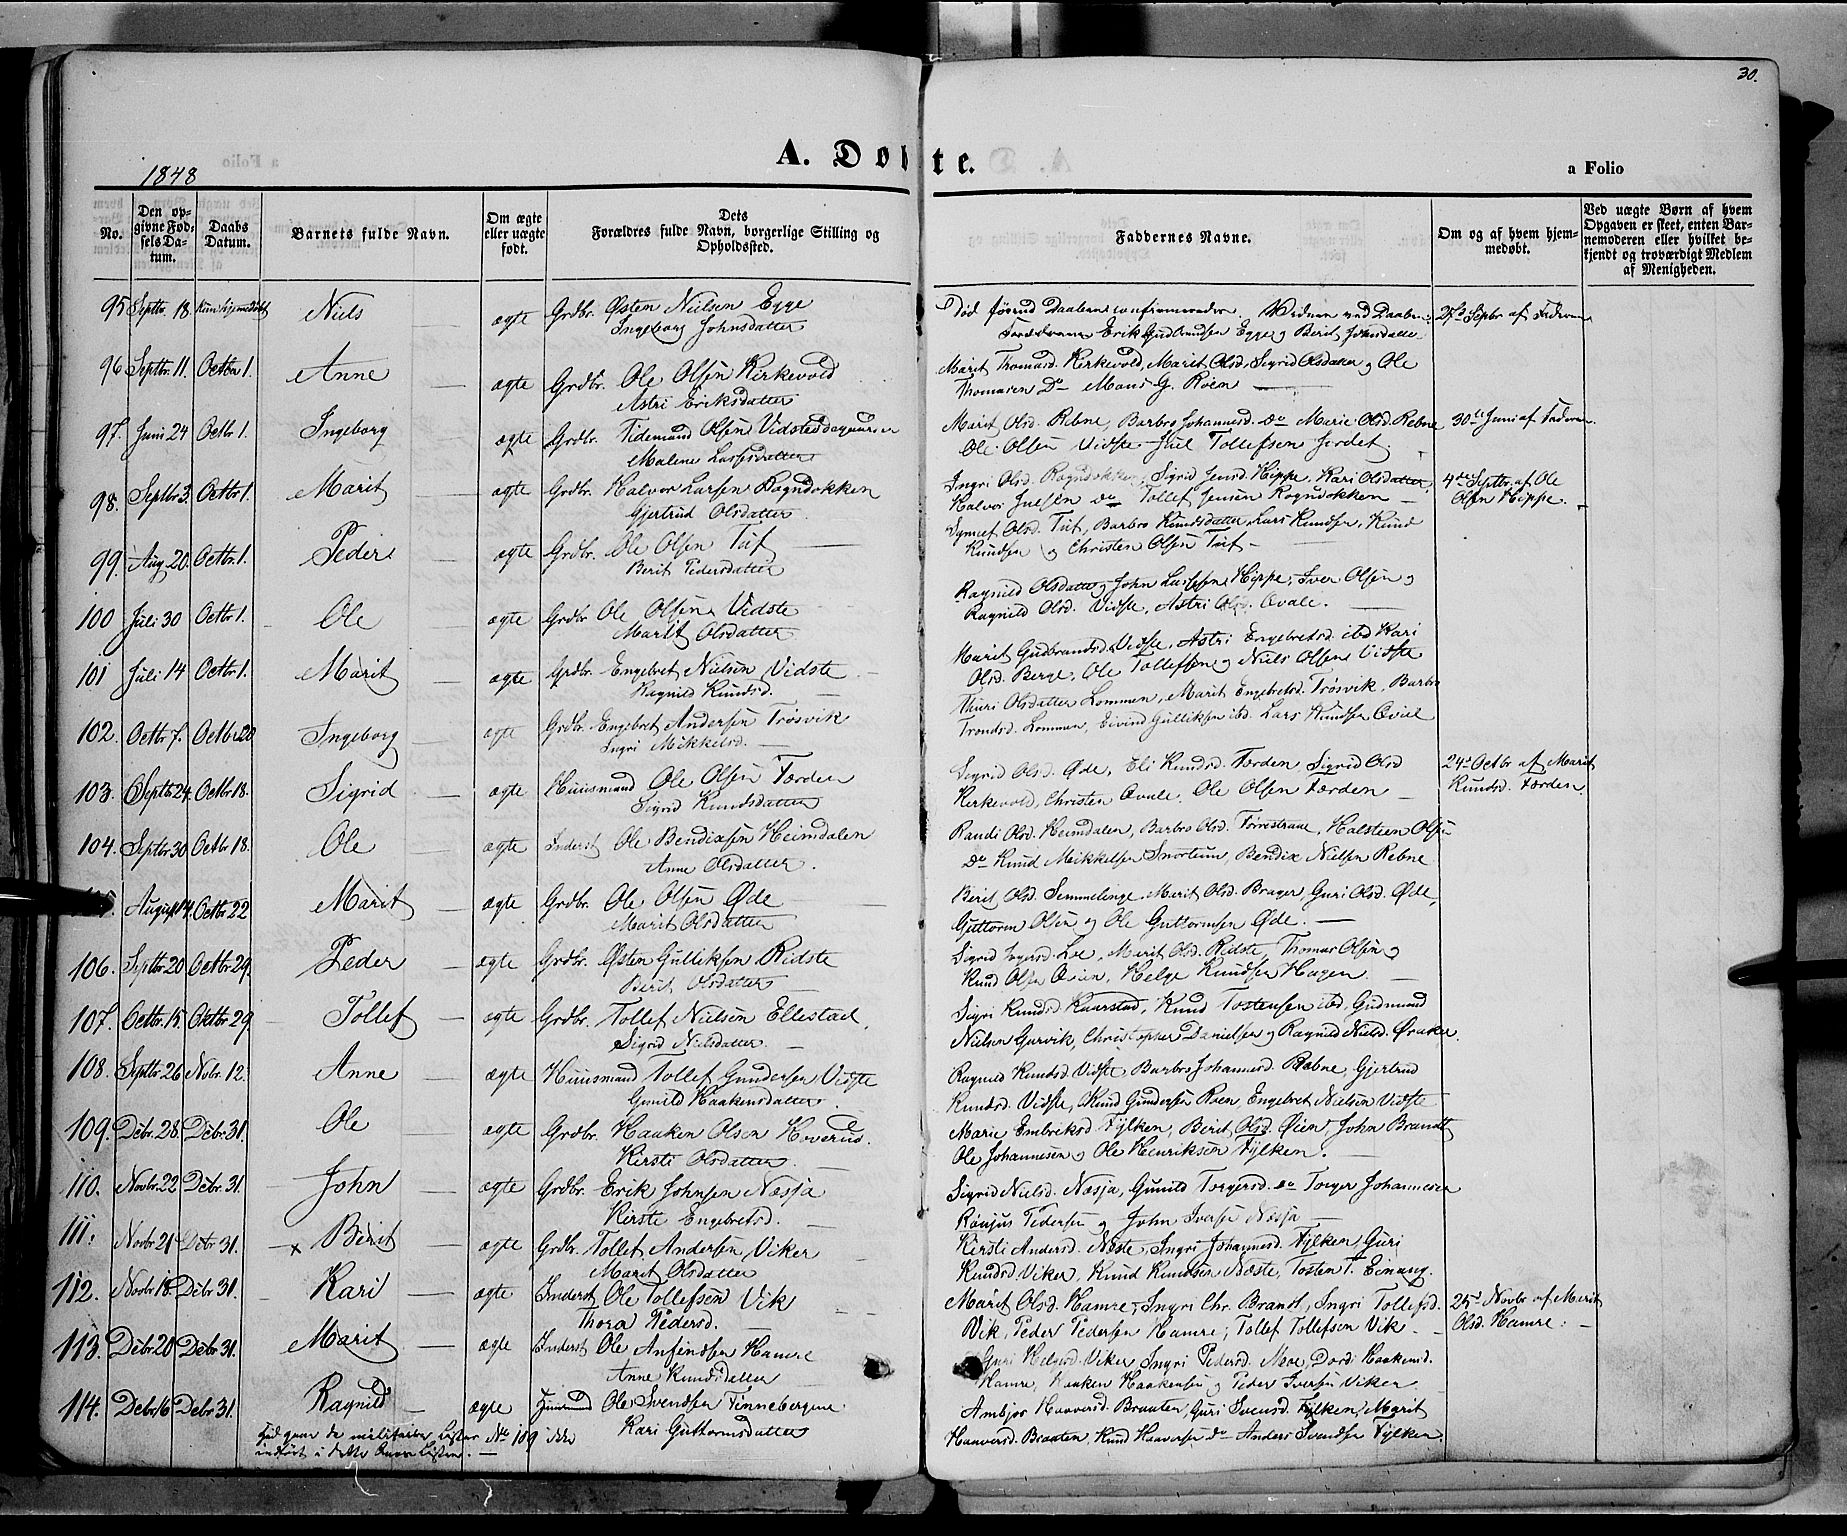 30.
1848
A. Døbte.
a Folio
No.
Den op-
givne Fød-
sels Da-
tum.
Daabs
Datum.
Barnets fulde Navn.
Om ægte
eller uægte
født.
Dets
Forældres fulde Navn, borgerlige Stilling og
Opholdssted.
Faddernes Navne.
Om og af hvem hjem-
medøbt.
Ved uægte Børn af hvem
Opgaven er skeet, enten Bar-
nemoderen eller hvilket be-
kjendt og troværdigt Medlem
af Menigheden.
95 Septbr. 18. Kun hjemmedøbt Niels — ægte Grdbr. Østen Nielsen Egge
Ingeborg Johnsdatter
Død førend Daabens
Erik Gudbrandsen Egge og Berit Johnsdatter
Septbr af Faderen
96 Septbr. 11. Octbr 1. Anne — ægte Grdbr. Ole Olsen Kirkevold
Astri Eriksdatter
Marit Thomasd. Kirkevold, Marit Olsd. Sigrid Olsdatter og Ole
Thomasen Do Mons G. Roen —
97. Juni 24 Octbr 1. Ingeborg — ægte Grdbr. Tidemand Olsen Vidste
Malene Larsdatter
Marit Olsd. Rebne, Barbro Johannesd. Do Marie Olsd. Rebne
Ole Olsen Vidste Juul Tollefsen Jordet.
30te Juni af Faderen
98. Septbr 3. Octbr 1. Marit — ægte Grdbr. Halvor Larsen Rogndokken
Gjertrud Olsdatter.
Ingri Olsd. Rogndokken, Sigrid Jensd. Hippe, Kari Olsdatter,
Halvor Juelsen Do Tollef Jensen Rogndokken —
4de Septbr. af Ole
Olsen Hippe.
99. Aug 20. Octbr. 1. Peder — ægte Grdbr. Ole Olsen Tuf —
Berit Pedersdatter
Synnef Olsd. Tuf, Barbro Knudsdatter, Lars Knudsen, Knud
Knudsen og Christen Olsen Tuf —
100 Juli 30 Octbr. 1. Ole — ægte Grdbr Ole Olsen Vidste
Marit Olsdatter
Ragnild Olsdatter og John Larsen Hippe, Iver Olsen og
Ragnild Olsd. Vidste, Astri Olsd. Qvale. —
101 Juli 14 Octbr. 1. Marit — ægte Grdbr. Engebret Nielsen Vidste —
Ragnild Knudsd. —
Marit Gudbrandsd. Vidste, Astri Engebretsd. ibd Kari
Olsd. Berge, Ole Tollefsen og Niels Olsen Vidste
102. Octbr 7. Octbr 20 Ingeborg — ægte Grdbr. Engebret Andersen Trøsvik
Ingri Mikkelsd. —
Thuri Olsdatter Lommen, Marit Engebretsd. Trøsvik, Barbro
Trondsd. Lommen, Eivind Gulliksen ibd. Lars Knudsen Qvale
103. Septbr 24. Octbr 18. Sigrid — ægte Huusmand Ole Olsen Førden
Sigrid Knudsdatter
Sigrid Olsd. Øde, Eli Knudsd. Førden, Sigrid Olsd
Kirkevold, Christen Qvale. Ole Olsen Førden —
24de Octbr af Marit
Knudsd. Førden.
104. Septbr 30 Octbr 18. Ole — ægte Inderst Ole Bendixen Heimdalen
Anne Olsdatter.
Randi Olsd. Heimdalen, Barbro Olsd. Halsten Olsen
Do Knud Mikkelsen Snortum, Bendix Nielsen Rebne
August 14. Octbr 22 Marit — ægte Grdbr. Ole Olsen Øde —
Marit Olsdatter
Berit Olsd. Semmelenge, Marit Olsd. Brager, Guri Olsd. Øde,
Guttorm Olsen og Ole Guttormsen Øde. —
106. Septbr 20 Octbr 29. Peder — ægte Grdbr. Østen Gulliksen Ridste
Berit Olsdatter —
Sigrid Lee, Marit Olsd. Ridste, Thomas Olsen og
Knud Olsen Qvien, Helge Knudsen Hagen —
107. Octbr. 15. Oktbr 29. Tollef — ægte Grdbr. Tollef Nielsen Ellestad.
Sigrid Nielsdatter. —
Sigri Knudsd. Kaarstad, Knud Tostensen ibd, Gudmund
Nielsen Gurvik, Christopher Danielsen og Ragnild Nielsd. Øraker.
108. Septbr 26 Novbr. 12. Anne — ægte Huusmand Tollef Gundersen Vidste
Gunild Haakensdatter
Ragnild Knudsd Vidste Barbro Johannesd. Rebne, Gjertrud
Knudsd. Vidste, Knud Gundersen Roen, Engebret Nielsen Vidste
109. Debr. 28. Debr. 31. Ole — ægte Grdbr. Haaken Olsen Hoverud.
Kirsti Olsdatter. —
Marie Embriksd Fylken, Berit Olsd. Øien, John Brandt
Ole Johannesen og Ole Henriksen Fylken. —
110. Novbr. 22 Debr. 31. John — ægte Grdbr. Erik Johnsen Næsja
Kirste Engebretsd. —
Sigrid Nielsd. Næsja, Gunild Torgersd. Do Torger Johannesen
Pedersen og John Iversen Næsja —
111. Novbr 21 Debr 31. x Berit — ægte Grdbr. Tollef Andersen Viker
Marit Olsdatter
Kirsti Andersd. Næste, Ingri Johannesd. Fylken, Guri
Knudsd. Viker, Knud Knudsen Næste, Tosten T. Einang.
112. Novbr 18. Debr 31. Kari — ægte Inderst Ole Tollefsen Vik
Thora Pedersd. —
Marit Olsd. Hamre, Ingri Chr. Brandt, Ingri Tollefsd.
Vik, Peder Pedersen Hamre, Tollef Tollefsen Vik —
25de Novbr af Marit
Olsd. Hamre.
113. Debr 20 Debr 31. Marit — ægte Inderst Ole Anfindsen Hamre
Anne Knudsdatter
Guri Helgesd. Viker Ingri Pedersd. Moe, Dordi Haakensd.
Hamre, Haaken Haakensen og Peder Iversen Viker.
114. Debr 16 Debr 31. Ragnild — ægte Huusmand Ole Svendsen Finnebergene
Kari Guttormsdatter
Ambjør Haaversd. Braaten, Guri Svensd. Fylken, Marit
Haaversd. Braaten, Knud Haaversen Do Anders Svendsen Fylken
de militaire Lister No 109 ikke
indført i dette Lister. —